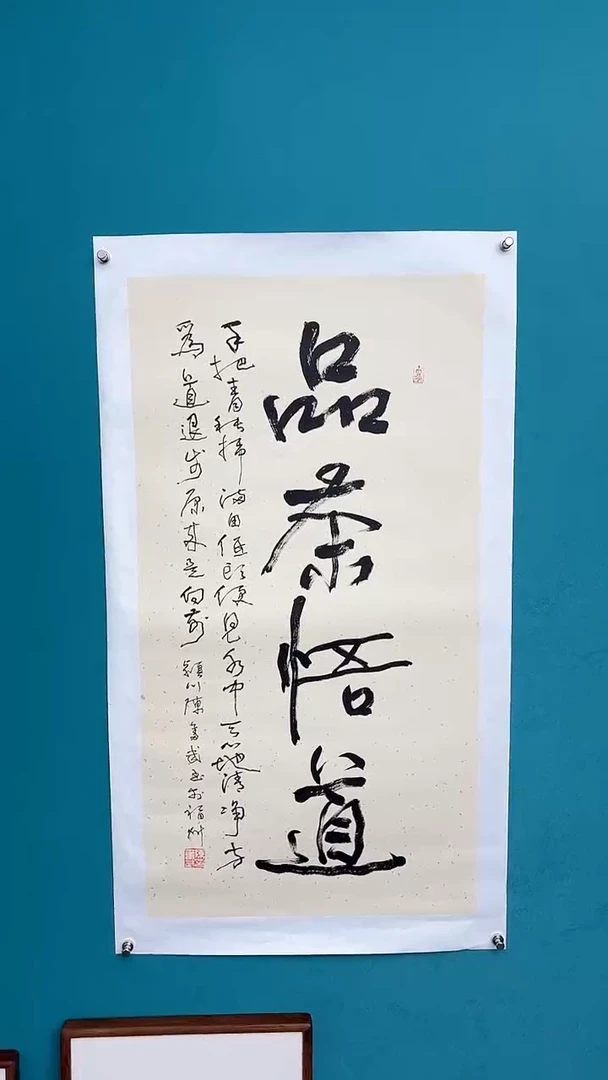 品茶悟道
手把青秧插滿田低頭便見水中天心地清淨方
為道退步原來是向前 潁川陳奮武書於福州